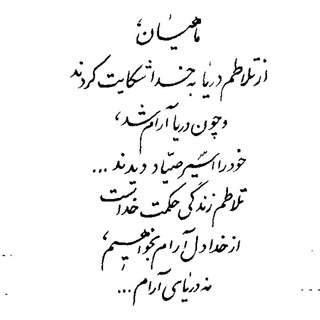 ماهیان،
از تلاطم دریا به خدا شکایت کردند
و چون دریا آرام شد،
خود را اسیر صیّاد دیدند ...
تلاطم زندگی حکمت خداست
از خدا دل آرام بخواهیم،
نه دریای آرام ...